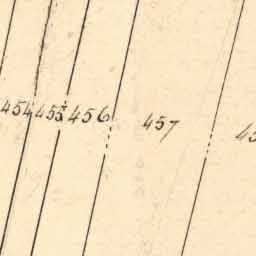 454 455 456 457